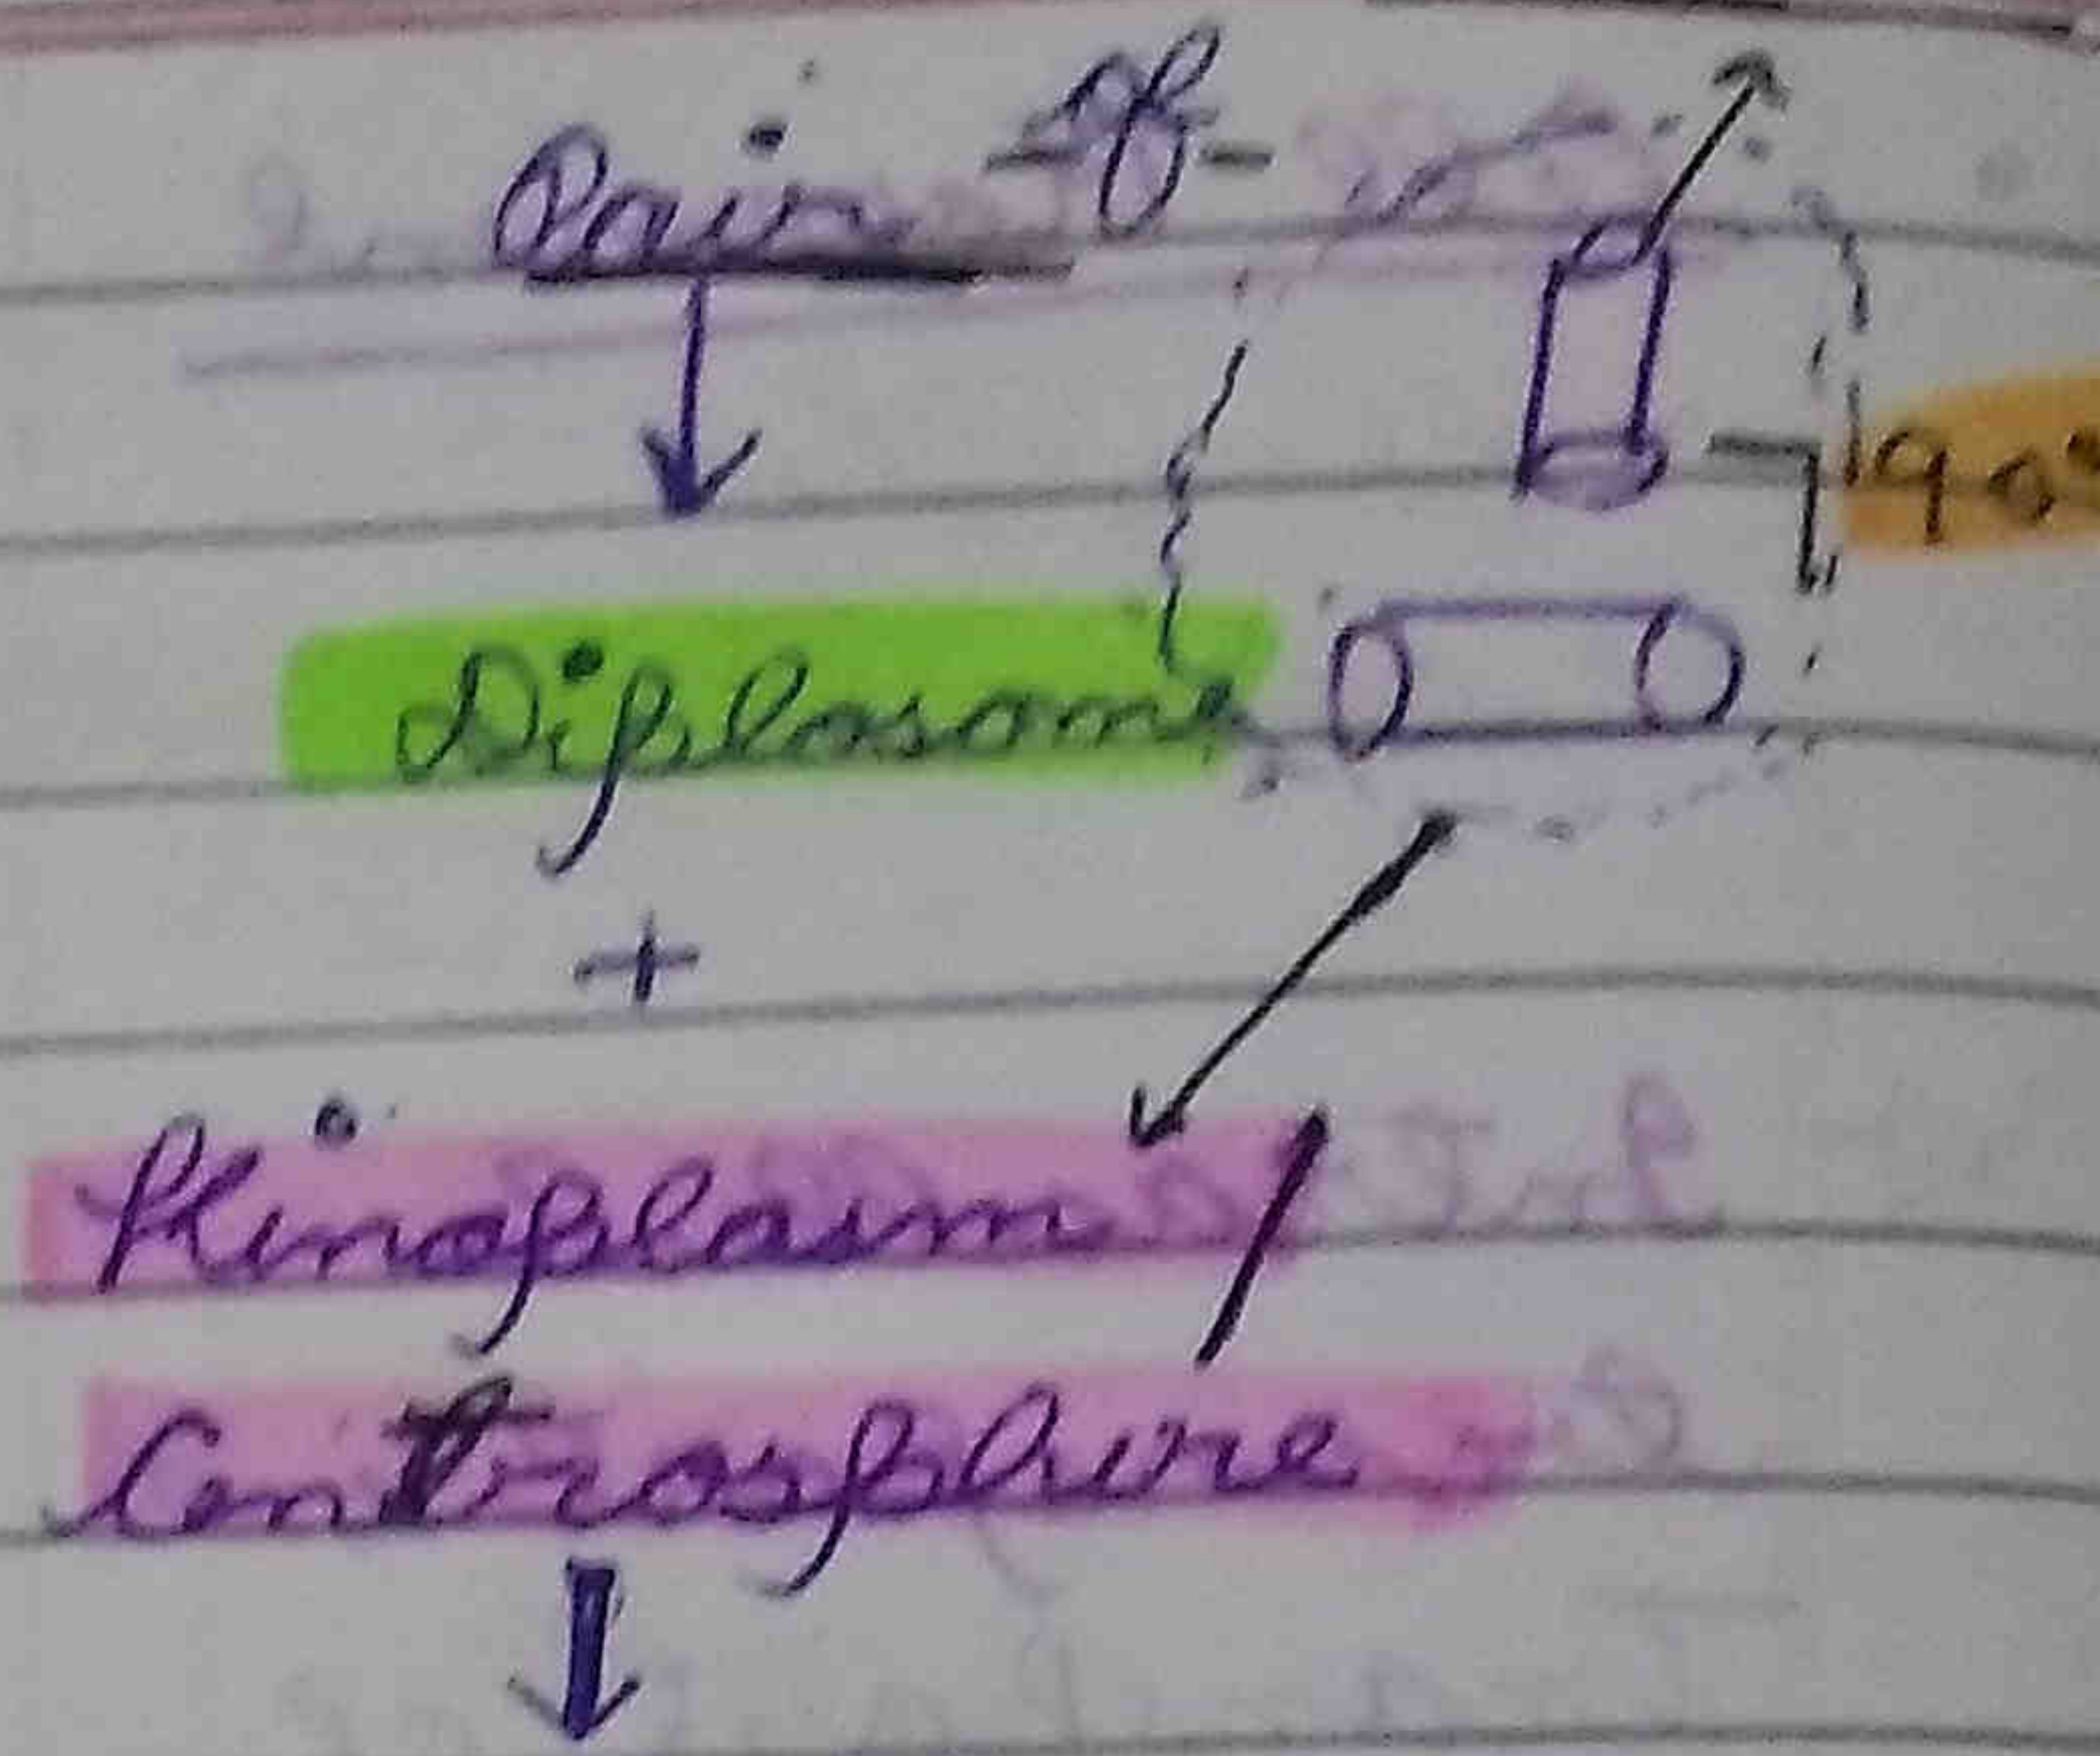 Pair of
90°
Diplosome
+
Kinoplasm /
Centrosphere